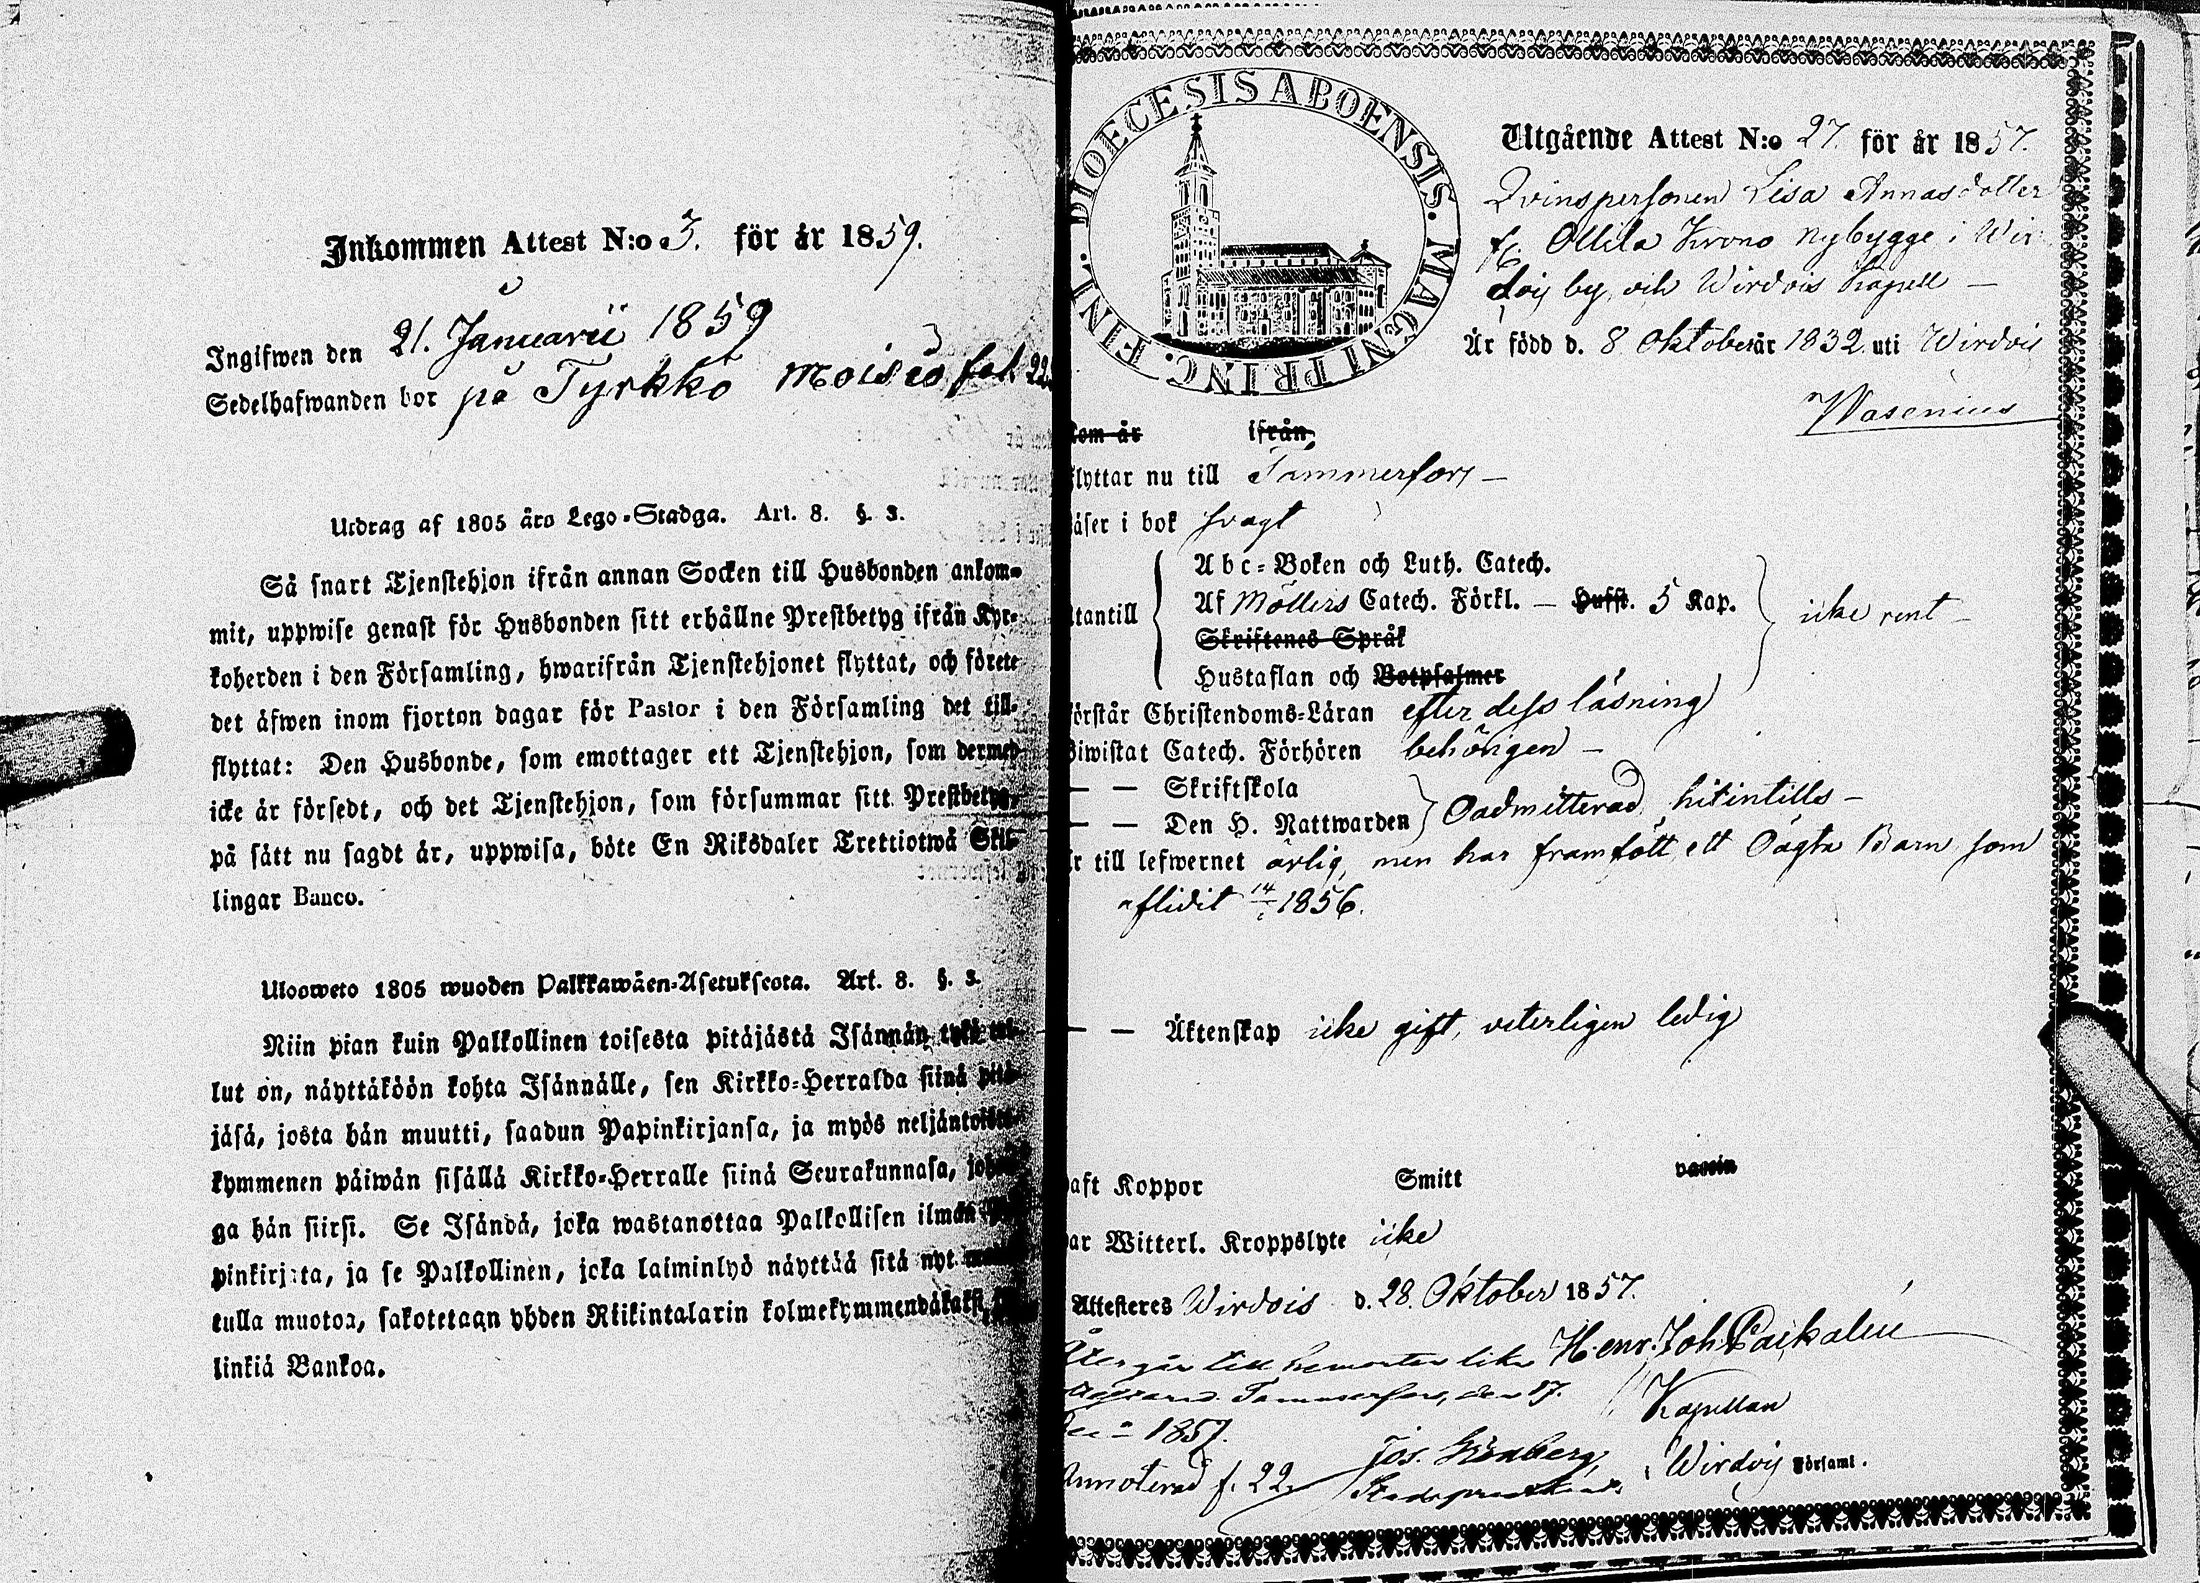 Inkommen Attest N:o 3. för år 1859.
Ingifwen den 21. Januarii 1859
Sedelhafwanden bor på Tyrkkö Moisio fol. 22
Utdrag af 1805 års Lego-Stadga. Art. 8. §. 3.
Så snart Tjenstehjon ifrån annan Socken till Husbonden ankom-
mit, uppwise genast för Husbonden sitt erhållne Prestbetyg ifrån Kyr-
koherden i den Församling, hwarifrån Tjenstehjonet flyttat, och förete
det äfwen inom fjorton dagar för Pastor i den Församling det till-
flyttat: Den Husbonde, som emottager ett Tjenstehjon, som dermed
icke är försedt, och det Tjenstehjon, som försummar sitt Prestbetyg,
på sätt nu sagdt är, uppwisa, böte En Riksdaler Trettiotwå Skil-
lingar Banco.
Ulosweto 1805 wuoden Palkkawäen-Asetuksesta. Art. 8. §. 3.
Niin pian kuin Palkollinen toisesta pitäjästä Isännän tykö tul-
lut on, näyttäköön kohta Isännälle, sen Kirkko-Herralda siinä pitä-
jäsä, josta hän muutti, saadun Papinkirjansa, ja myös neljäntoista-
kymmenen päiwän sisällä Kirkko-Herralle siinä Seurakunnasa, johon-
ga hän siirsi. Se Isändä, joka wastanottaa Palkollisen ilman Pa-
pinkirjata, ja se Palkollinen, joka laiminlyö näyttää sitä nyt
tulla muotoa, sakotetaan yhden Riikintalarin kolmekymmendäkaksi
linkiä Bankoa.
DIOECESIS ABOENSIS. MAGNI PRINC. FINL.
Utgående Attest N:o 27. för år 1857.
Qvinspersonen Lisa Annasdotter
fr. Ollila Krono nybygge i Wir
dois by och Wirdois Kapell —
Är född d. 8 Oktober år 1832 uti Wirdois
Wasenius
kom år ifrån
flyttar nu till Tammerfors —
läser i bok svagt
utantill
Abc-Boken och Luth. Catech.
Af Möllers Catech. Förkl. — Hufst. 5 Kap.
Skriftenes Språk
Hustaflan och Botpsalmer
icke rent —
förstår Christendoms-Läran efter dess läsning
Biwistat Catech. Förhören behörigen —
— — Skriftskola
— — Den H. Nattwarden
Oadmitterad hitintills —
är till lefwernet ärlig, men har framfött ett Oägta Barn som
aflidit 1856.
— — Äktenskap icke gift, veterligen ledig
haft Koppor Smitt vaccin
har Witterl. Kroppslyte icke
Attesteres Wirdois d. 28. Oktober 1857.
Henr. Joh
Återgår till hemorten
Tammerfors, den 17.
1857.
Kapellan
Annoterad f. 22
Jos. Grönberg
Wirdois Församl.